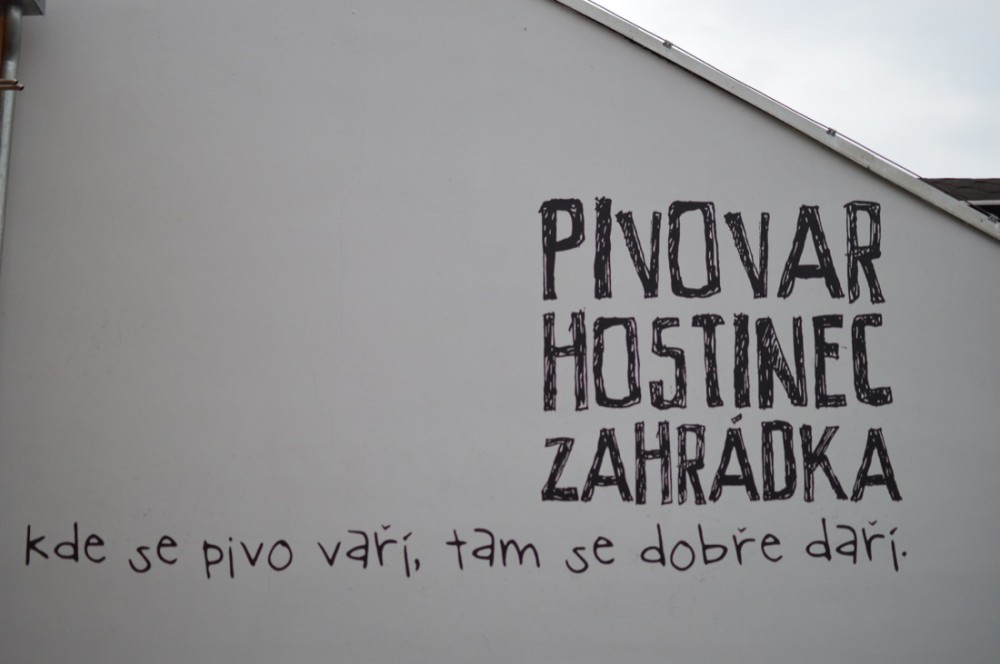 PIVOVAR
HOSTINEC
ZAHRÁDKA
kde se pivo vaří, tam se dobře daří.